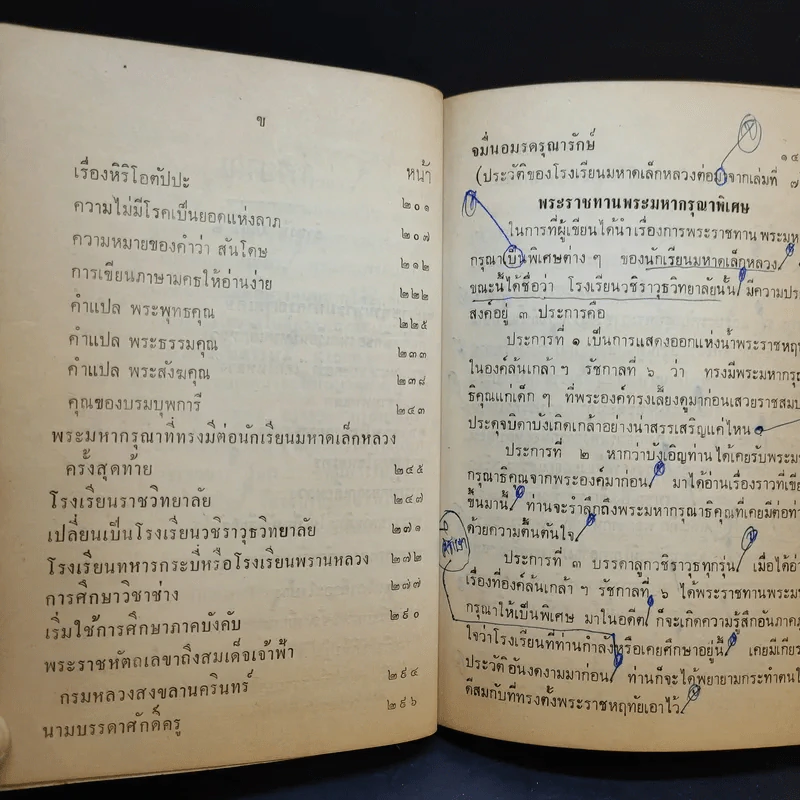 ข
หน้า
เรื่องหิริโอตัปปะ ๒๐๑
ความไม่มีโรคเป็นยอดแห่งลาภ ๒๐๗
ความหมายของคำว่า สันโดษ ๒๑๒
การเขียนภาษามคธให้อ่านง่าย ๒๒๒
คำแปล พระพุทธคุณ ๒๒๕
คำแปล พระธรรมคุณ ๒๓๓
คำแปล พระสังฆคุณ ๒๓๘
คุณของบรมบุพการี ๒๔๓
พระมหากรุณาที่ทรงมีต่อนักเรียนมหาดเล็กหลวง
ครั้งสุดท้าย ๒๔๕
โรงเรียนราชวิทยาลัย ๒๔๗
เปลี่ยนเป็นโรงเรียนวชิราวุธวิทยาลัย ๒๗๑
โรงเรียนทหารกระบี่หรือโรงเรียนพรานหลวง ๒๗๒
การศึกษาวิชาช่าง ๒๗๗
เริ่มใช้การศึกษาภาคบังคับ ๒๙๐
พระราชหัตถเลขาถึงสมเด็จเจ้าฟ้า
กรมหลวงสงขลานครินทร์ ๒๙๔
นามบรรดาศักดิ์ครู ๒๙๖
จมื่นอมรดรุณารักษ์
๑๔
(ประวัติของโรงเรียนมหาดเล็กหลวงต่อมาจากเล่มที่ ๗
พระราชทานพระมหากรุณาพิเศษ
ในการที่ผู้เขียนได้นำเรื่องการพระราชทาน พระมห
กรุณาเป็นพิเศษต่าง ๆ ของนักเรียนมหาดเล็กหลวง
ขณะนี้ได้ชื่อว่า โรงเรียนวชิราวุธวิทยาลัยนั้น มีความประ
สงค์อยู่ ๓ ประการคือ
ประการที่ ๑ เป็นการแสดงออกแห่งน้ำพระราชหฤ
ในองค์ล้นเกล้า ฯ รัชกาลที่ ๖ ว่า ทรงมีพระมหากรุณ
ธิคุณแก่เด็ก ๆ ที่พระองค์ทรงเลี้ยงดูมาก่อนเสวยราชสมบ
ประดุจบิดาบังเกิดเกล้าอย่างน่าสรรเสริญแค่ไหน
ประการที่ ๒ หากว่าบังเอิญท่านได้เคยรับพระมห
กรุณาธิคุณจากพระองค์มาก่อน มาได้อ่านเรื่องราวที่เขีย
ขึ้นมานี้ ท่านจะรำลึกถึงพระมหากรุณาธิคุณที่เคยมีต่อท่า
ด้วยความตื้นตันใจ
ประการที่ ๓ บรรดาลูกวชิราวุธทุกรุ่น เมื่อได้อ่า
เรื่องที่องค์ล้นเกล้า ฯ รัชกาลที่ ๖ ได้พระราชทานพระมห
กรุณาให้เป็นพิเศษ มาในอดีต ก็จะเกิดความรู้สึกอันภาคภู
ใจว่าโรงเรียนที่ท่านกำลังหรือเคยศึกษาอยู่นี้ เคยมีเกีย
ประวัติอันงดงามมาก่อน ท่านก็จะได้พยายามกระทำตนให
ดีสมกับที่ทรงตั้งพระราชหฤทัยเอาไว้